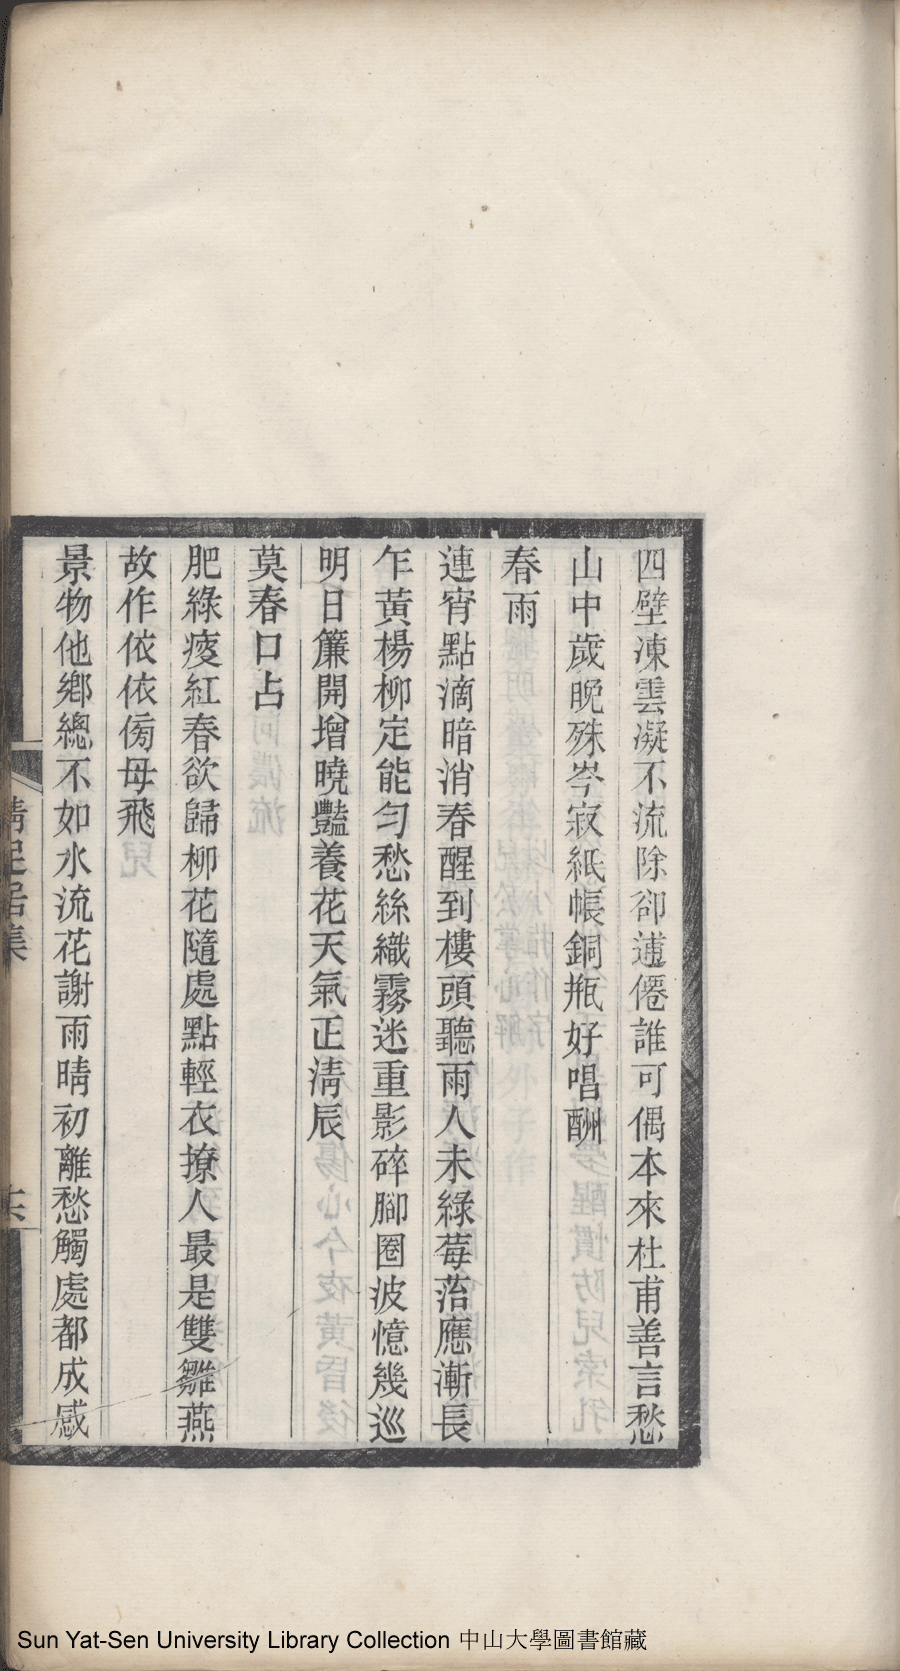 四壁凍雲凝不流除卻逋僊誰可偶本來杜甫善言愁
山中歲晚殊岑寂紙帳銅瓶好唱酬
春雨
連宵點滴暗消春醒到樓頭聽雨人未綠莓苔應漸長
乍黃楊柳定能勻愁絲織霧迷重影碎腳圈波憶幾巡
明日簾開增曉豔養花天氣正淸辰
莫春口占
肥綠瘦紅春欲歸柳花隨處點輕衣撩人最是雙雛燕
故作依依傍母飛
景物他鄉總不如水流花謝雨晴初離愁觸處都成感
居集
Sun Yat-Sen University Library Collection 中山大學圖書館藏